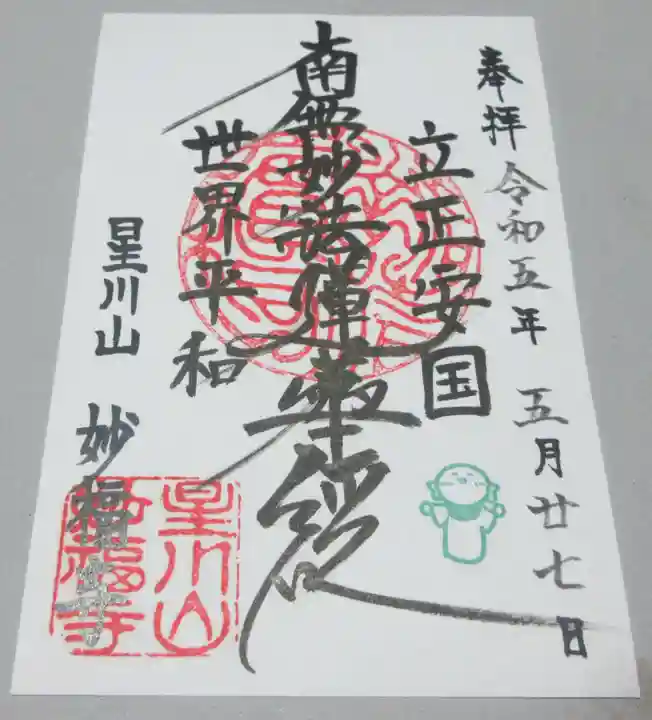 奉拝 令和五年 五月廿七日
立正安国
南無妙法蓮華経
世界平和
星川山 妙福寺
星川山
妙福寺